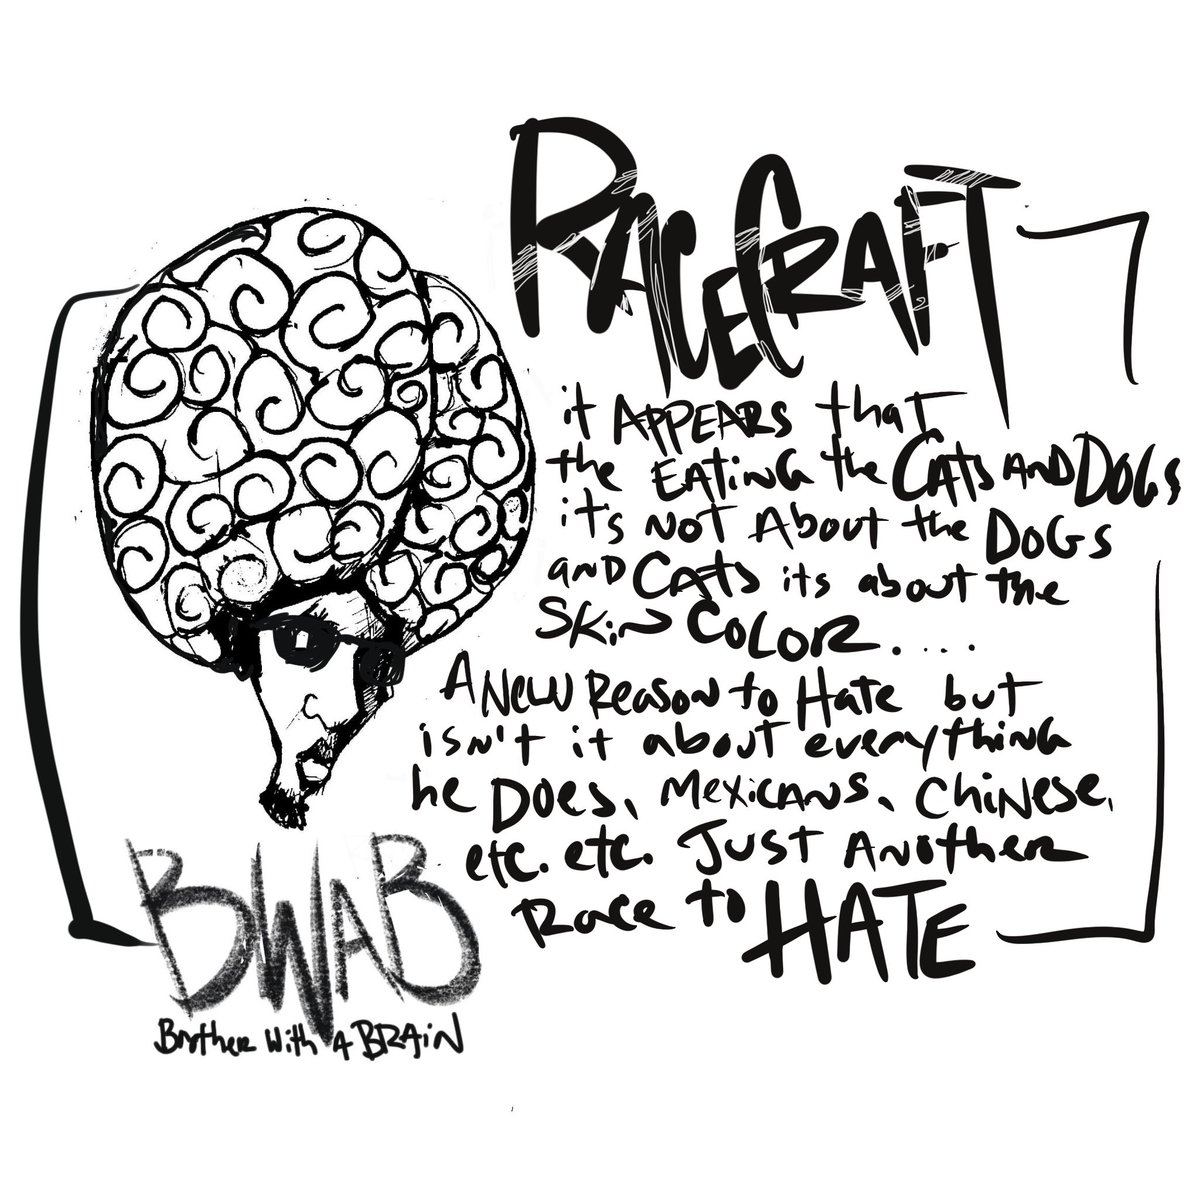 RACECRAFT
it APPEARS that
the EATiNG the CATS AND DOGS
it's NOT About the DOGS
AND CAts its about the
SKiN COLOR. . . .
A New Reason to Hate but
isn't it about everythiNG
he DOES, MexicANS, ChiNESE,
etc. etc. Just ANotheR
Race to HATE
BWAB
Brother With A BRAiN